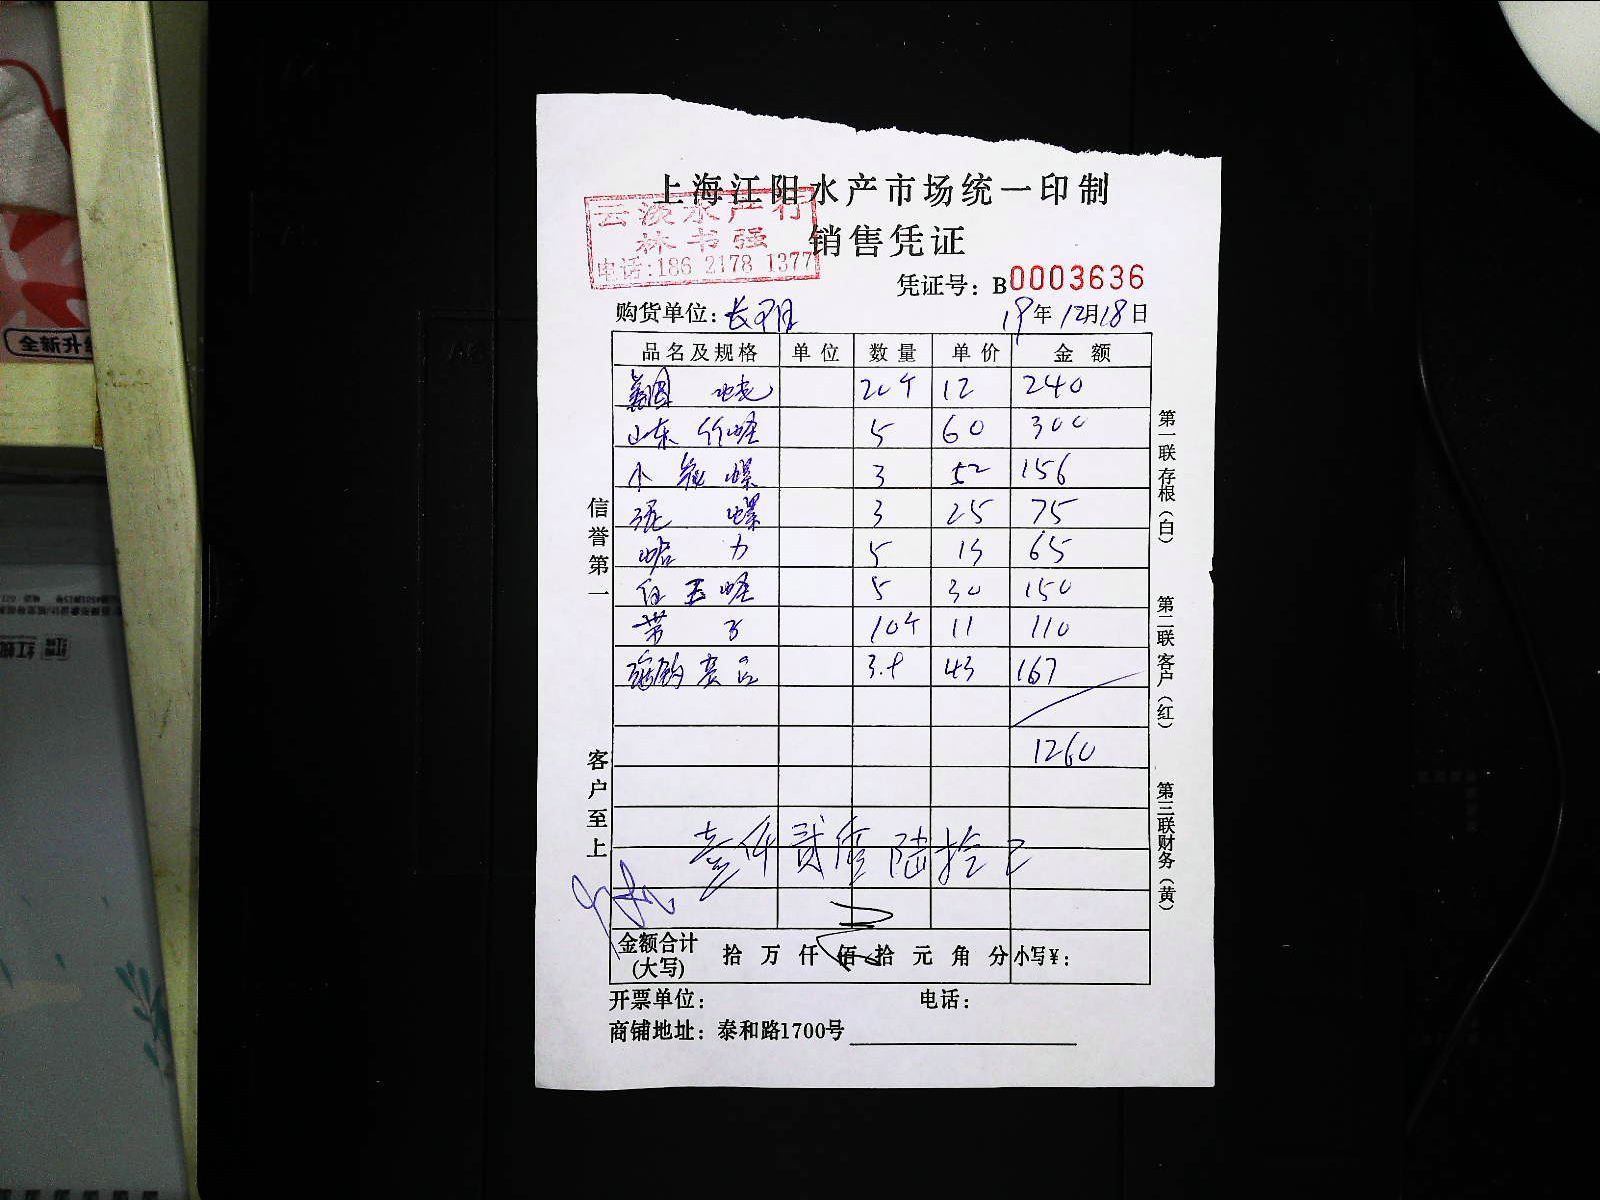 上海江阳水产市场统一印制
云淡水产行
林书强
电话:186 2178 1377
销售凭证
凭证号: B0003636
购货单位: 长阳
19年12月18日
品名及规格 单位 数量 单价 金额
20个 12 240
山东竹蛏 5 60 300
小 螺 3 52 156
泥螺 3 25 75
蛤力 5 13 65
蛏 5 30 150
带子 10个 11 110
3.9 43 167
1260
壹仟贰佰陆拾元
金额合计(大写) 拾 万 仟 佰 拾 元 角 分 小写¥:
开票单位: 电话:
商铺地址: 泰和路1700号
信誉第一
客户至上
第一联存根(白)
第二联客户(红)
第三联财务(黄)
全新升级